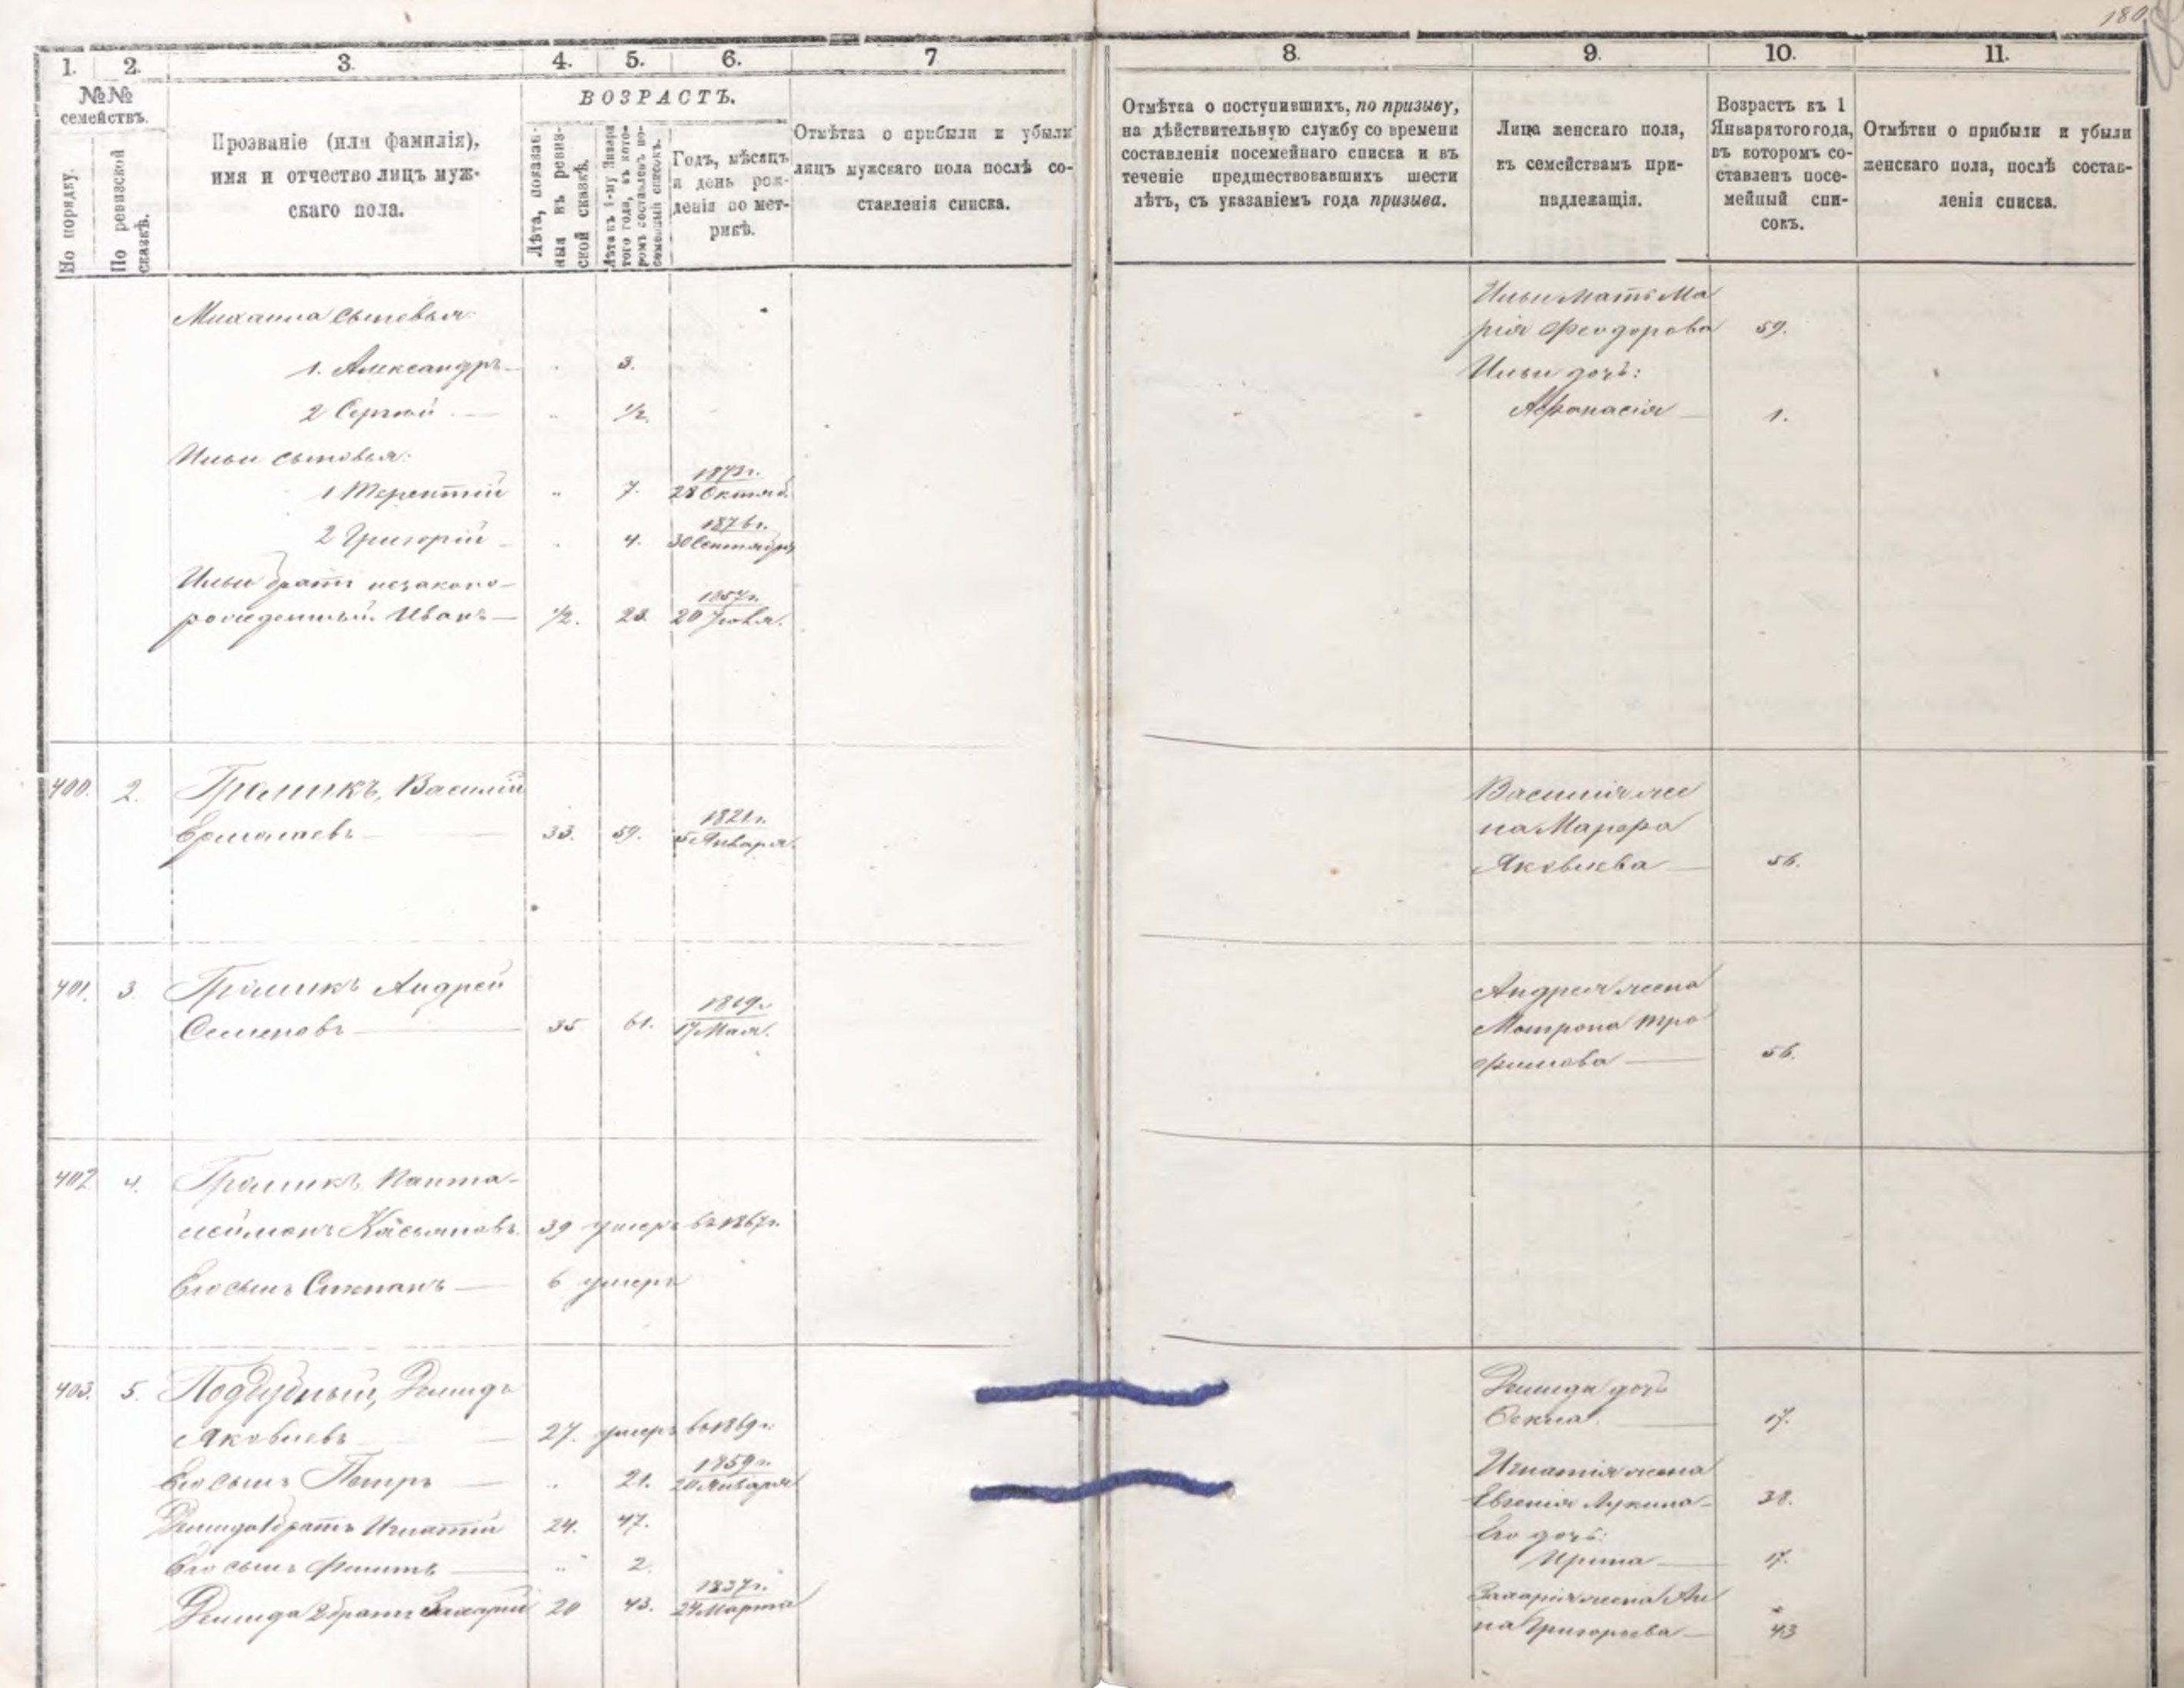 180
1. 2. 3. 4. 5. 6. 7
№№ семействъ.
По порядку.
По ревизской сказкѣ.
Прозваніе (или фамилія),
имя и отчество лицъ муж-
скаго пола.
ВОЗРАСТЪ.
Лѣта, показан-
ныя въ ревиз-
ской сказкѣ.
Лѣта къ 1-му Января
того года, въ кото-
ромъ составленъ по-
семейный списокъ.
Годъ, мѣсяцъ
и день рож-
денія по мет-
рикѣ.
Отмѣтка о прибыли и убыли
лицъ мужскаго пола послѣ со-
ставленія списка.
Михаила сыновья:
1. Александръ 3.
2 Сергѣй 1/2.
Ильи сыновья:
1 Терентій 7. 1873 г. 28 Октяб.
2 Григорій 4. 1876 г. 30 Сентября
Ильи братъ незаконо-
рожденный Иванъ 1/2. 23. 1857 г. 20
400. 2. Громикъ, Василій
Ермолаевъ 33. 59. 1821 г. 5 Января.
401. 3 Громикъ Андрей
Семеновъ 35 61. 1819 г. 17 Мая.
402 4. Громикъ Панта-
леймонъ Касьяновъ. 39 умеръ въ 1867 г.
Его сынъ Степанъ 6 умеръ
403. 5. Поддубный, Демидъ
Яковлевъ 27. умеръ въ 1869 г.
Его сынъ Петръ 21. 1859 г. 20 Января
Демида 1 братъ Игнатій 24. 47.
Его сынъ Филипъ 2.
Демида 2 братъ Захарій 20 43. 1837 г. 24 Марта
8. 9. 10. 11.
Отмѣтка о поступившихъ, по призыву,
на дѣйствительную службу со времени
составленія посемейнаго списка и въ
теченіе предшествовавшихъ шести
лѣтъ, съ указаніемъ года призыва.
Лица женскаго пола,
къ семействамъ при-
надлежащія.
Возрастъ къ 1
Января того года,
въ которомъ со-
ставленъ посе-
мейный спи-
сокъ.
Отмѣтки о прибыли и убыли
женскаго пола, послѣ состав-
ленія списка.
Ильи мать Ма
рія Феодорова 59.
Ильи дочь:
Афанасія 1.
Василія же
на Марфа
Яковлева 56.
Андрея жена
Матрона Тро
фимова 56.
Демида дочь
Фекла 17.
Игнатія жена
Евгенія Лукина 38.
Его дочь:
Ирина 17.
Захарія жена Ан
на Григорьева 43